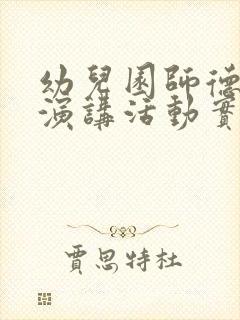 幼兒園師德
演講活動實
賈思特杜